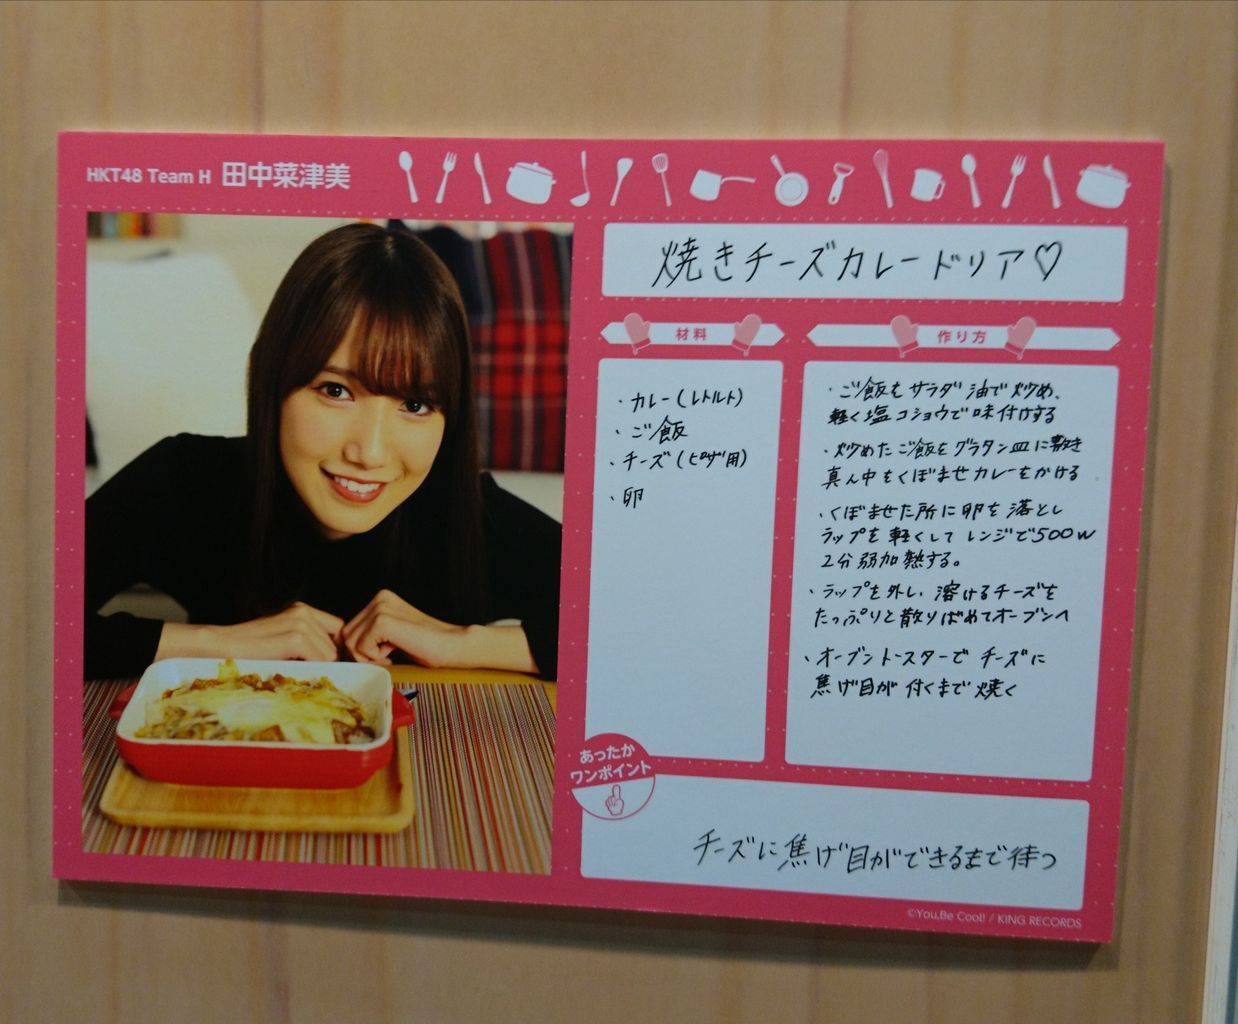 HKT48 Team H 田中菜津美
焼きチーズカレードリア♡
材料
・カレー(レトルト)
・ご飯
・チーズ(ピザ用)
・卵
作り方
・ご飯をサラダ油で炒め、
軽く塩コショウで味付けする
・炒めたご飯をグラタン皿に敷き
真ん中をくぼませカレーをかける
・くぼませた所に卵を落とし
ラップを軽くしてレンジで500W
2分弱加熱する。
・ラップを外し、溶けるチーズを
たっぷりと散りばめてオーブンへ
・オーブントースターでチーズに
焦げ目が付くまで焼く
あったか
ワンポイント
チーズに焦げ目ができるまで待つ
©You,Be Cool! / KING RECORDS